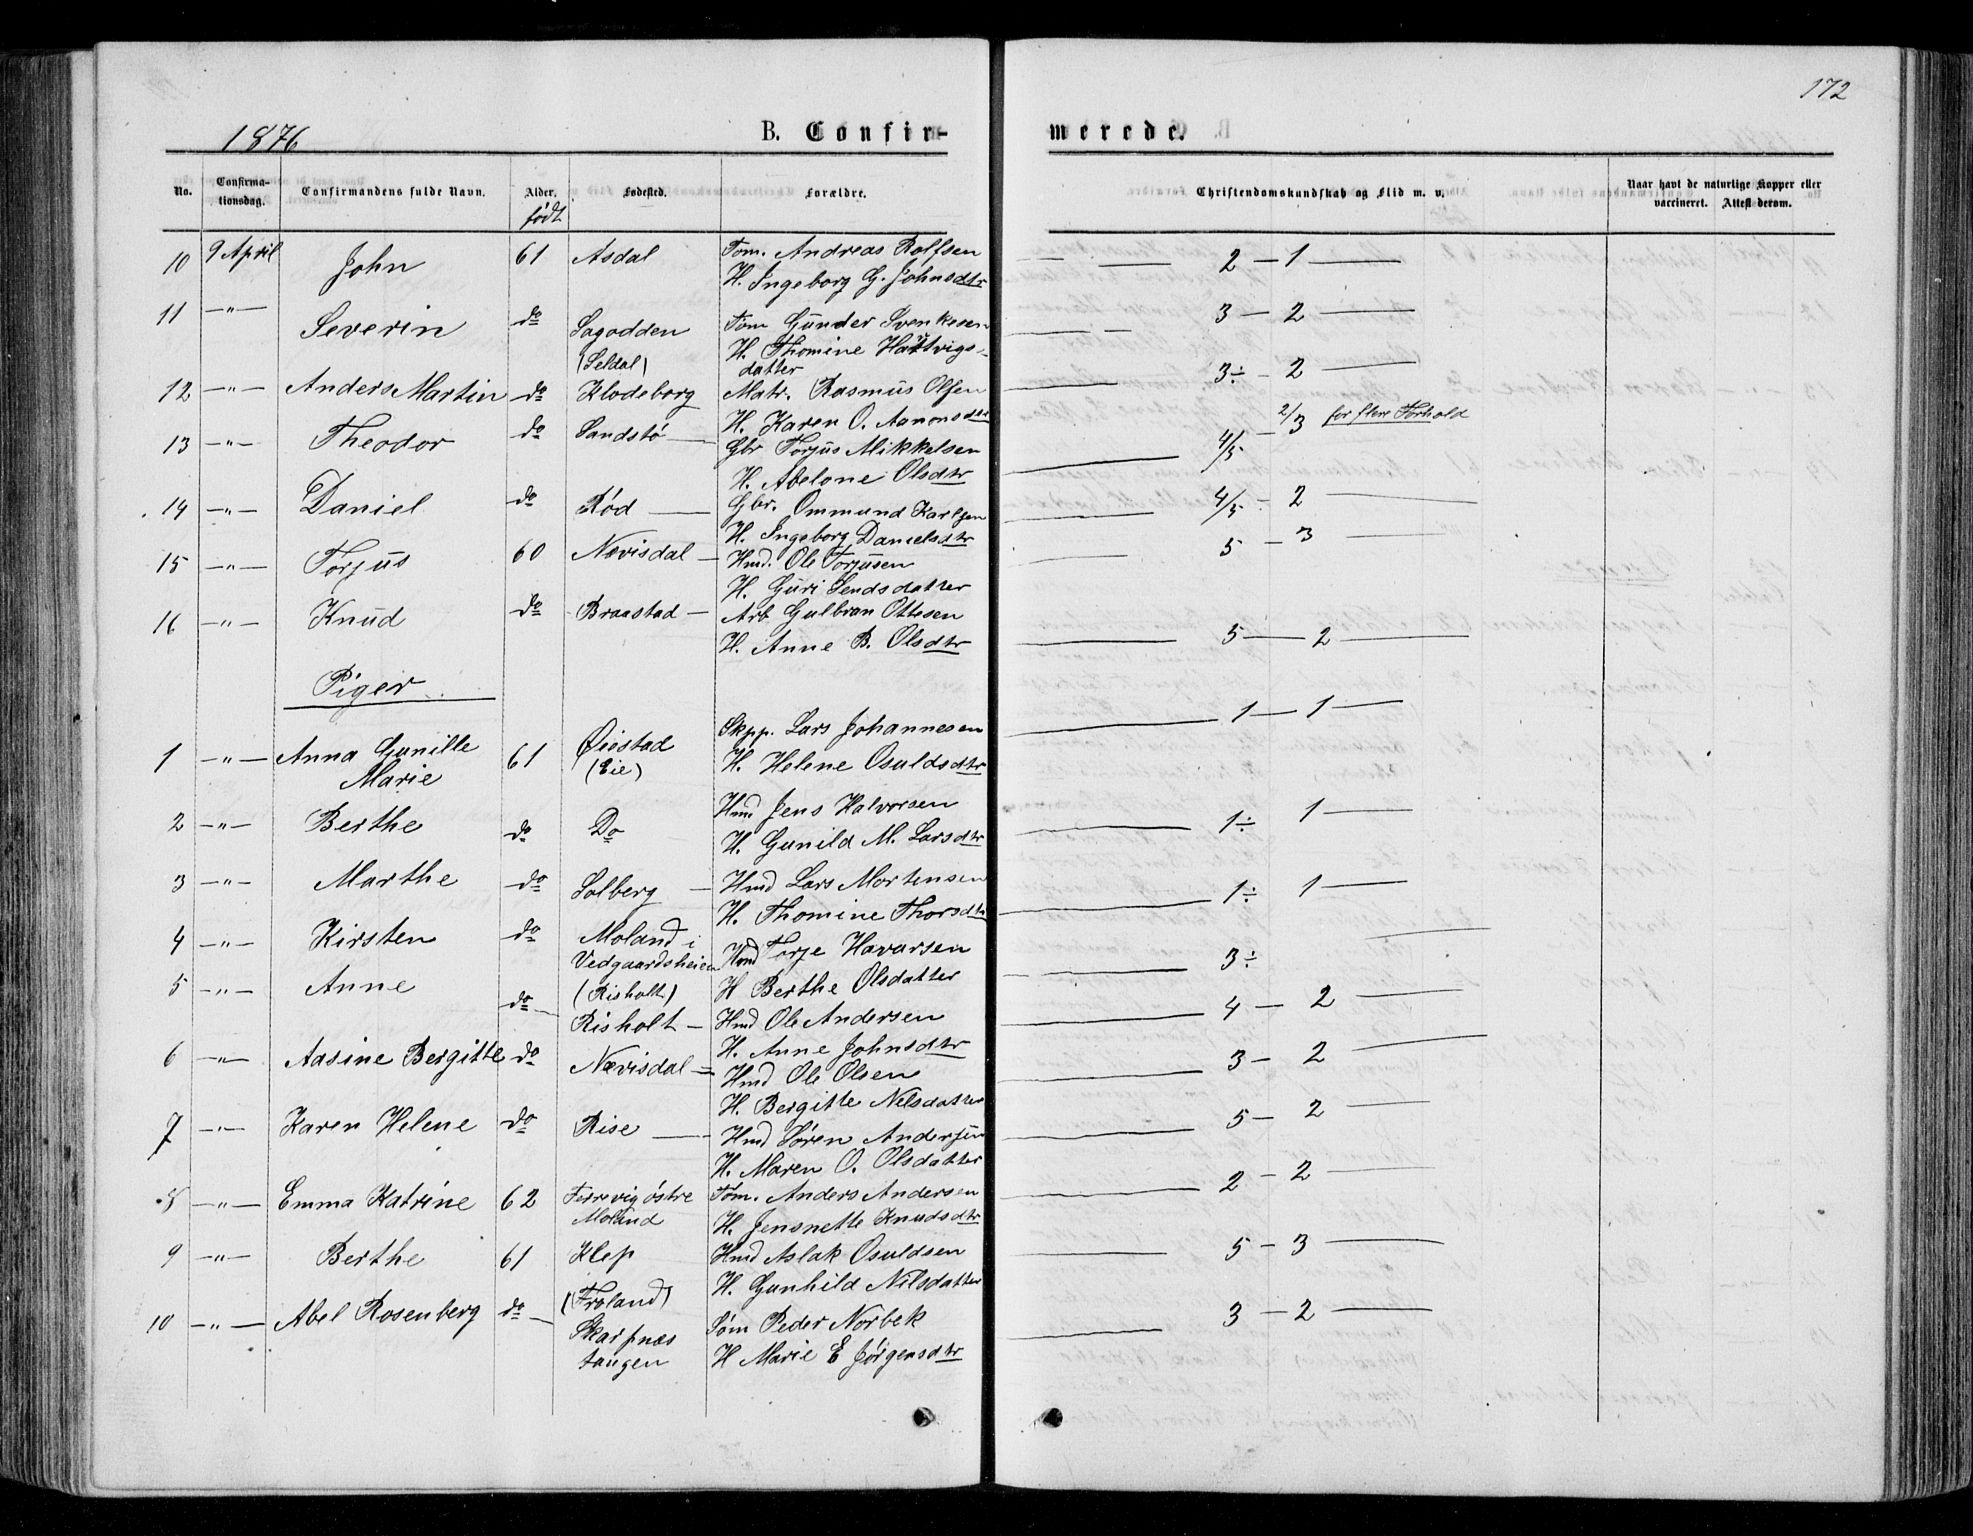 172
1876 B. Confirmerede.
No. Confirmationsdag. Confirmandens fulde Navn. Alder. født Fødested. Forældre. Christendomskundskab og Flid m. v. Naar havt de naturlige Kopper eller vaccineret. Attest derom.
10 9 April John 61 Asdal Tøm. Andreas Rolfsen 2 — 1
H. Ingeborg G. Johnsdtr
11 —"— Severin do Sagodden Tøm Gunder Svenksen 3 — 2
(Seldal) H. Thomine Hartvigs-
datter
12 —"— Anders Martin do Klodeborg Matr. Rasmus Olsen 3÷ — 2
H. Karen O. Aanonsdtr
13 —"— Theodor do Sandstø Gbr Torjus Mikkelsen 4/5 — 2/3 for flere Forhold
H. Abelone Olsdtr
14 —"— Daniel do Rød Gbr. Ommund Karlsen 4/5 — 2
H. Ingeborg Danielsdtr
15 —"— Torjus 60 Nævisdal Hmd. Ole Torjusen 5 — 3
H. Guri Sendsdatter
16 —"— Knud do Braastad Arb Gulbran Ottesen 5 — 2
H. Anne B. Olsdtr
Piger
1 —"— Anna Gunille Marie 61 Øiestad (Eie) Skpp. Lars Johannesen 1 — 1
H. Helene Osuldsdtr
2 —"— Berthe do Do Hmd Jens Halvorsen 1÷ 1
H. Gunild M. Larsdtr
3 —"— Marthe do Solberg Hmd Lars Mortensen 1÷ 1
H. Thomine Thorsdtr
4 —"— Kirsten do Moland i Vedgaardsheien (Risholt) Hmd Torje Havarsen 3÷
H Berthe Olsdatter
5 —"— Anne do Risholt Hmd Ole Andersen 4 — 2
H. Anne Johnsdtr
6 —"— Aasine Bergitte do Nævisdal Hmd Ole Olsen 3 — 2
H. Bergitte Nilsdatter
7 —"— Karen Helene do Rise Hmd Søren Andersen 5 — 2
H. Maren O. Olsdatter
8 —"— Emma Katrine 62 Ferrevig østre Moland Tøm. Anders Andersen 2 — 2
H. Jensnette Knudsdtr
9 —"— Berthe 61 Klep (Froland) Hmd Aslak Osuldsen 5 — 3
H. Gunhild Nilsdatter
10 —"— Abel Rosenberg do Skarpnæs tangen Søm Peder Norbek 3 — 2
H Marie E Jørgensdtr